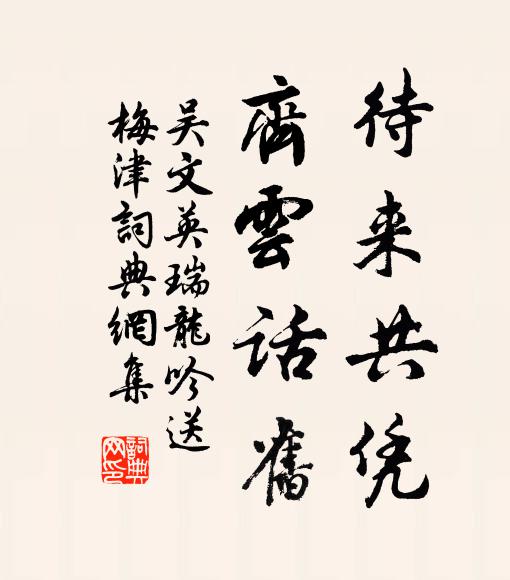 待来共凭
齊雲話舊
吴文英瑞龍吟送
梅津詞典網集
詞典
网印